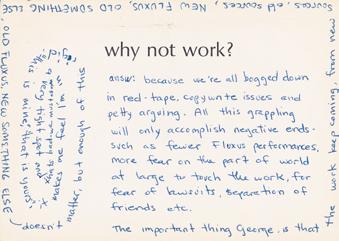 why not work?
answ: because we're all bogged down
in red-tape, copywrite issues and
petty arguing. All this grappling
will only accomplish negative ends.
such as fewer Fluxus performances,
more fear on the part of world
at large to touch the work, for
fear of lawsuits, separation of
friends etc.
The important thing George, is that
the work keep coming, from new
Sources, old sources, NEW FLUXUS, OLD SOMETHING ELSE
, OLD FLUXUS, NEW SOMETHING ELSE
doesn't
matter, but enough of this
"this is mine, that is yours"
makes me feel I'm in
a very tight spot and